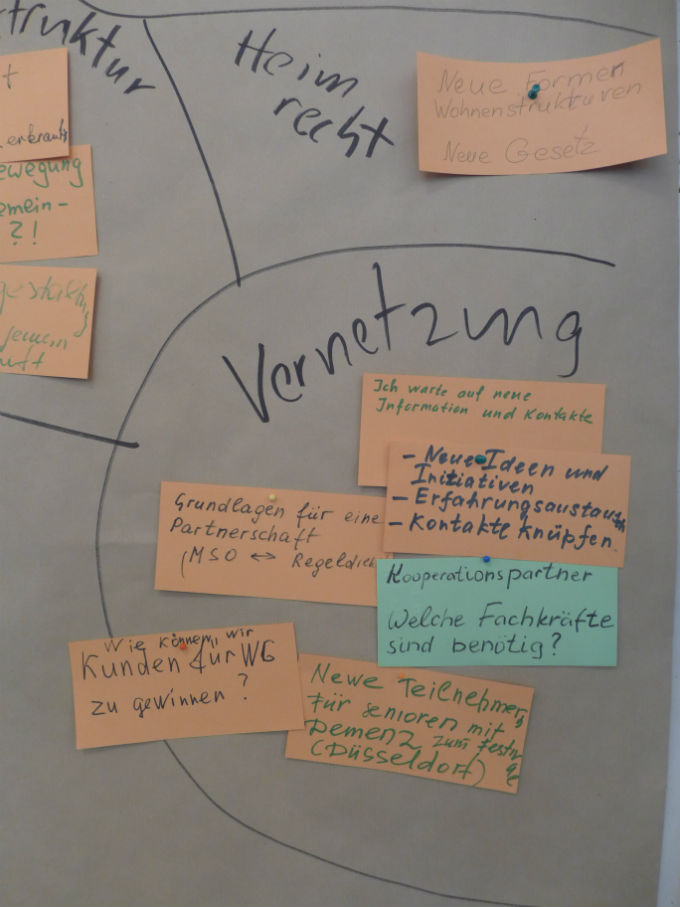 truktur
Heim
recht
Neue Formen
Wohnenstrukturen
Neue Gesetz
t
erkrankt
ewegung
emein-
?!
Vernetzung
Ich warte auf neue
Information und Kontakte
- Neue Ideen und
Initiativen
- Erfahrungsaustausch
- Kontakte knüpfen.
Grundlagen für eine
Partnerschaft
(MSO ↔ Regeldien
Kooperationspartner
Welche Fachkräfte
sind benötig?
Wie können wir
Kunden fur WG
zu gewinnen?
Newe Teilnehmer
für senioren mit
Demenz zum
(Düsseldorf)